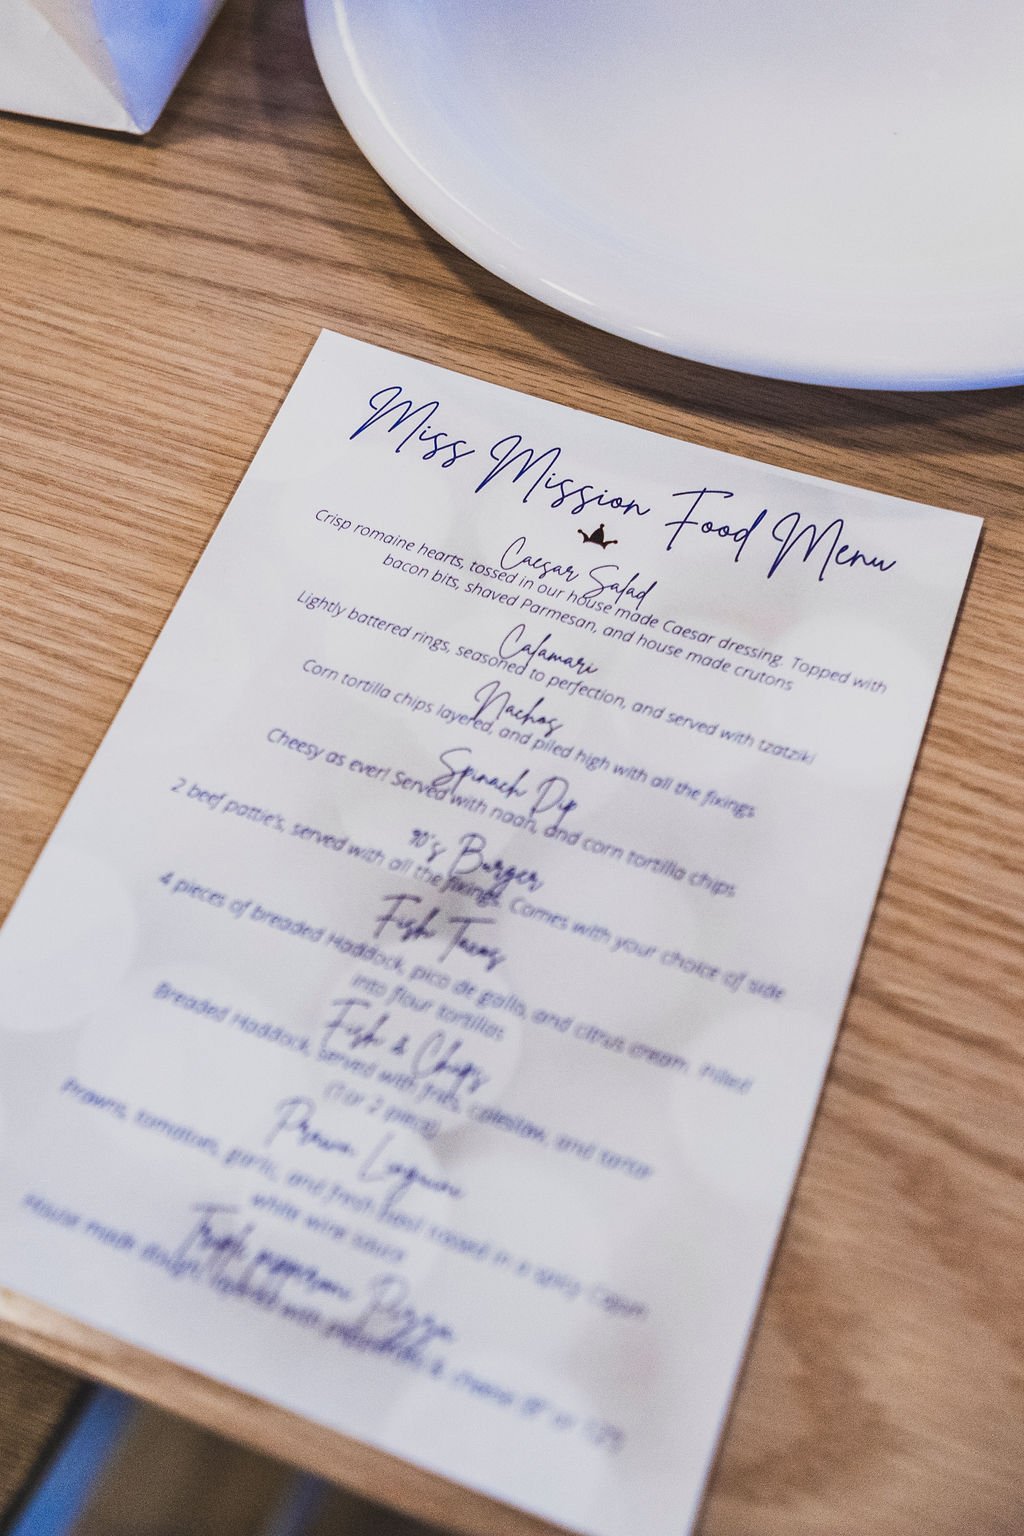 Miss Mission Food Menu
Caesar Salad
Crisp romaine hearts, tossed in our house made Caesar dressing. Topped with
bacon bits, shaved Parmesan, and house made crutons
Calamari
Lightly battered rings, seasoned to perfection, and served with tzatziki
Nachos
Corn tortilla chips layered, and piled high with all the fixings
Spinach Dip
Cheesy as ever! Served with naan, and corn tortilla chips
90's Burger
2 beef pattie's, served with all the fixings. Comes with your choice of side
Fish Tacos
4 pieces of breaded Haddock, pico de gallo, and citrus cream. Filled
into flour tortillas
Fish & Chips
Breaded Haddock, served with fries, coleslaw, and tartar
(1 or 2 piece)
Prawn
Prawns, tomatoes, garlic, and fresh tossed in a spicy Cajun
white wine sauce
pepperoni Pizza
House made dough, topped with & cheese